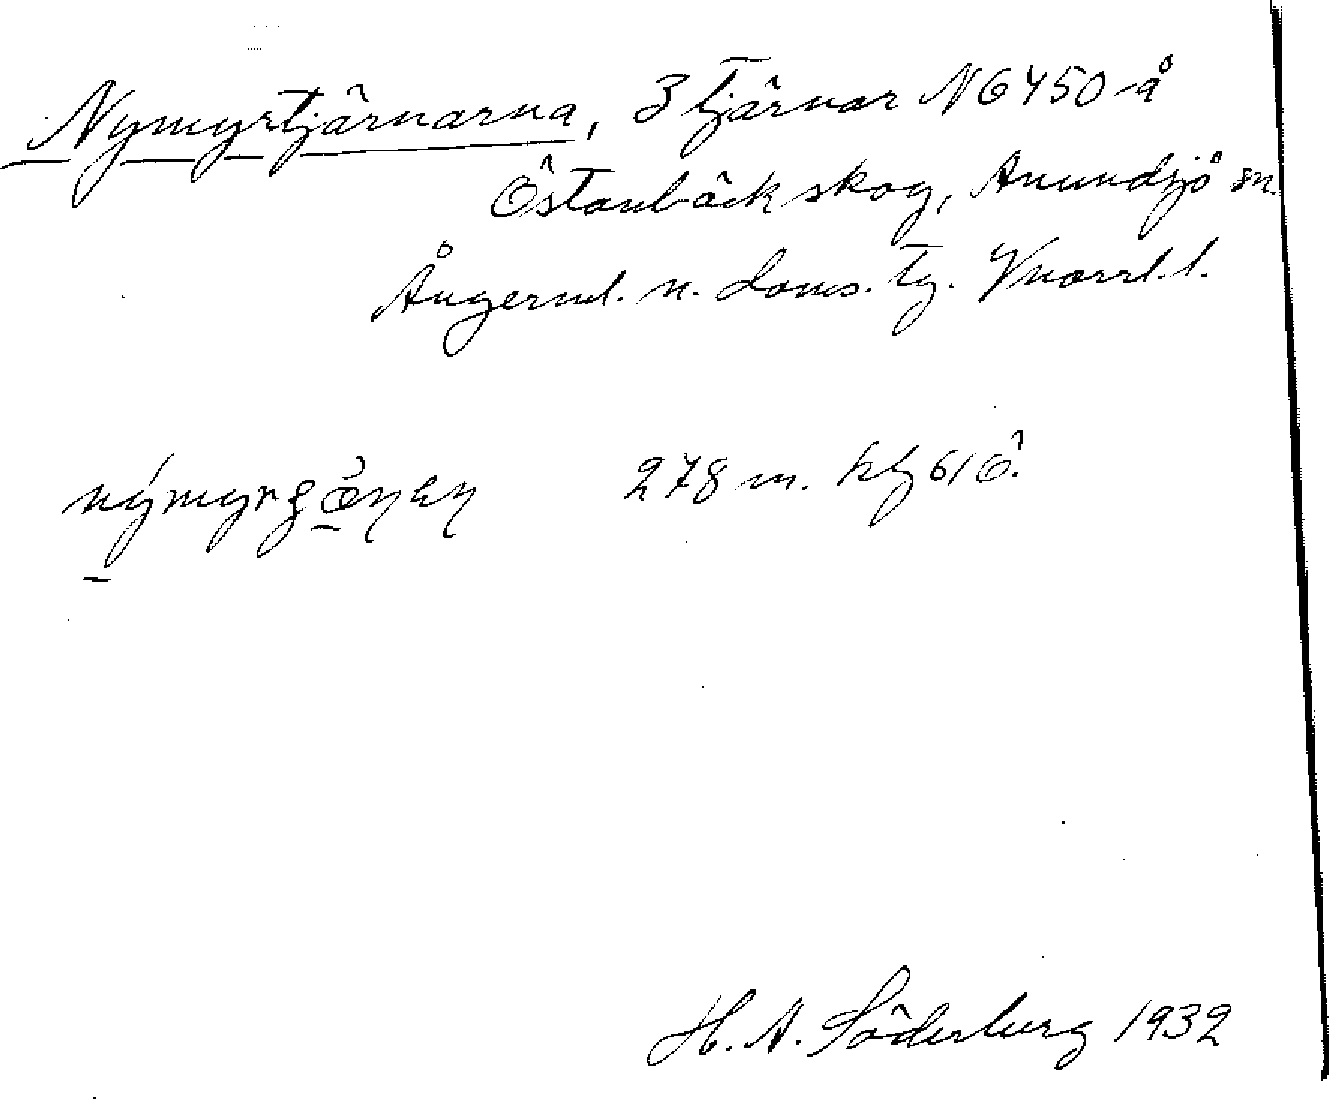 Nymyrtjärnarna, 3 tjärnar N 6450 å
Östanbäck skog, Anundsjö sn
Ångerml. n. doms. tg. Vnorrl. l.
278 m. kbl 61 Ö.
H. A. Söderberg 1932